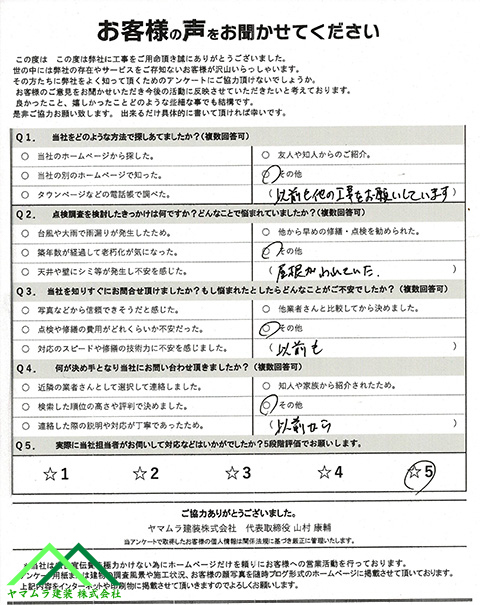 お客様の声をお聞かせてください
この度は　この度は弊社に工事をご用命頂き誠にありがとうございました。
世の中には弊社の存在やサービスをご存知ないお客様が沢山いらっしゃいます。
その方たちに弊社をよく知って頂くためのアンケートにご協力頂けないでしょうか。
お客様のご意見をお聞かせいただき今後の活動に反映させていただきたいと考えております。
良かったこと、嬉しかったことどのような些細な事でも結構です。
是非ご協力お願い致します。 出来るだけ具体的に書いて頂ければ幸いです。
Q1. 当社をどのような方法で探しあてましたか？(複数回答可)
○ 当社のホームページから探した。 ○ 友人や知人からのご紹介。
○ 当社の別のホームページで知った。 ○ その他
○ タウンページなどの電話帳で調べた。 (以前も他の工事をお願いしています)
Q2. 点検調査を検討したきっかけは何ですか？どんなことで悩まれていましたか？(複数回答可)
○ 台風や大雨で雨漏りが発生したため。 ○ 他から早めの修繕・点検を勧められた。
○ 築年数が経過して老朽化が気になった。 ○ その他
○ 天井や壁にシミ等が発生し不安を感じた。 (屋根がいていた. )
Q3. 当社を知りすぐにお問合せ頂けましたか？もし悩まれたとしたらどんなことがご不安でしたか？(複数回答可)
○ 写真などから信頼できそうだと感じた。 ○ 他業者さんと比較してから決めました。
○ 点検や修繕の費用がどれくらいか不安だった。 ○ その他
○ 対応のスピードや修繕の技術力に不安を感じました。 (以前も )
Q4. 何が決め手となり当社にお問い合わせ頂きましたか？(複数回答可)
○ 近隣の業者さんとして選択して連絡しました。 ○ 知人や家族から紹介されたため。
○ 検索した順位の高さや評判で決めました。 ○ その他
○ 連絡した際の説明や対応が丁寧であったため。 (以前から )
Q5. 実際に当社担当者がお伺いして対応などはいかがでしたか？5段階評価でお願いします。
☆1 ☆2 ☆3 ☆4 ☆5
ご協力ありがとうございました。
ヤマムラ建装株式会社　代表取締役 山村 康輔
当アンケートで取得したお客様の個人情報は関係法規に基づき厳正に管理いたします。
＊当社は 宣伝費 極力かけない為にホームページだけを頼りにお客様への営業活動を行っております。
アンケート用紙 建物 調査風景や施工状況、お客様の顔写真を随時ブログ形式のホームページに掲載させて頂いております。
上記内容をインターネットや印刷物に掲載させて頂きますのでよろしくお願いします。
ヤマムラ建装 株式会社